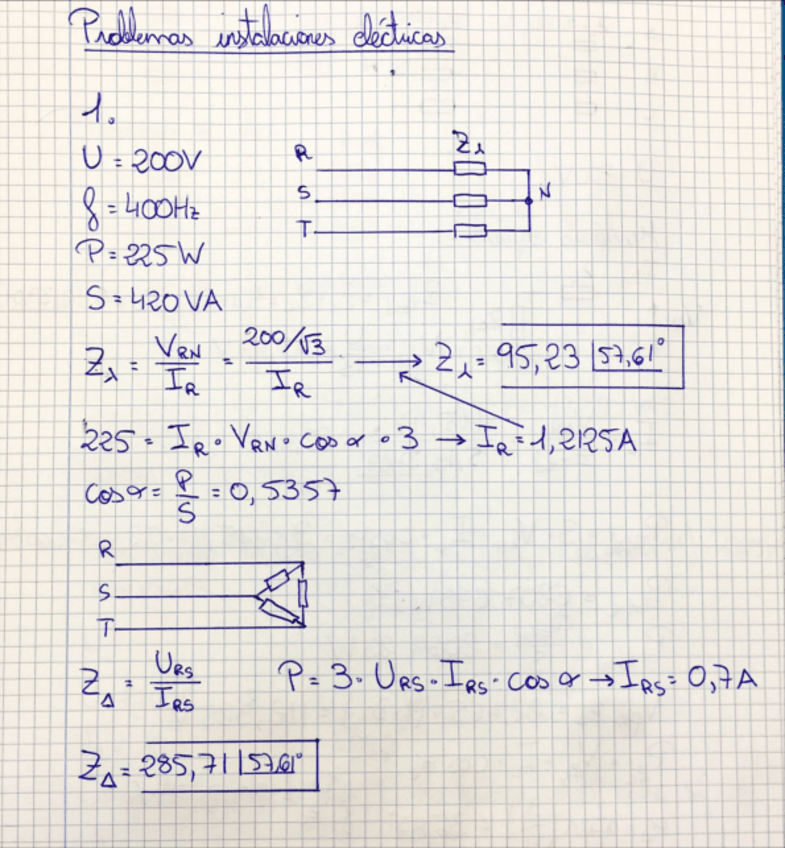 Problemas instalaciones eléctricas
1.
U = 200V
f = 400Hz
P = 225W
S = 420VA
R
S
T
Zλ
N
Zλ = VRN / IR = 200/√3 / IR → Zλ = 95,23 |57,61°
225 = IR · VRN · cos α · 3 → IR = 1,2125A
cos α = P/S = 0,5357
R
S
T
ZΔ = URS / IRS P = 3 · URS · IRS · cos α → IRS = 0,7A
ZΔ = 285,71 |57,61°